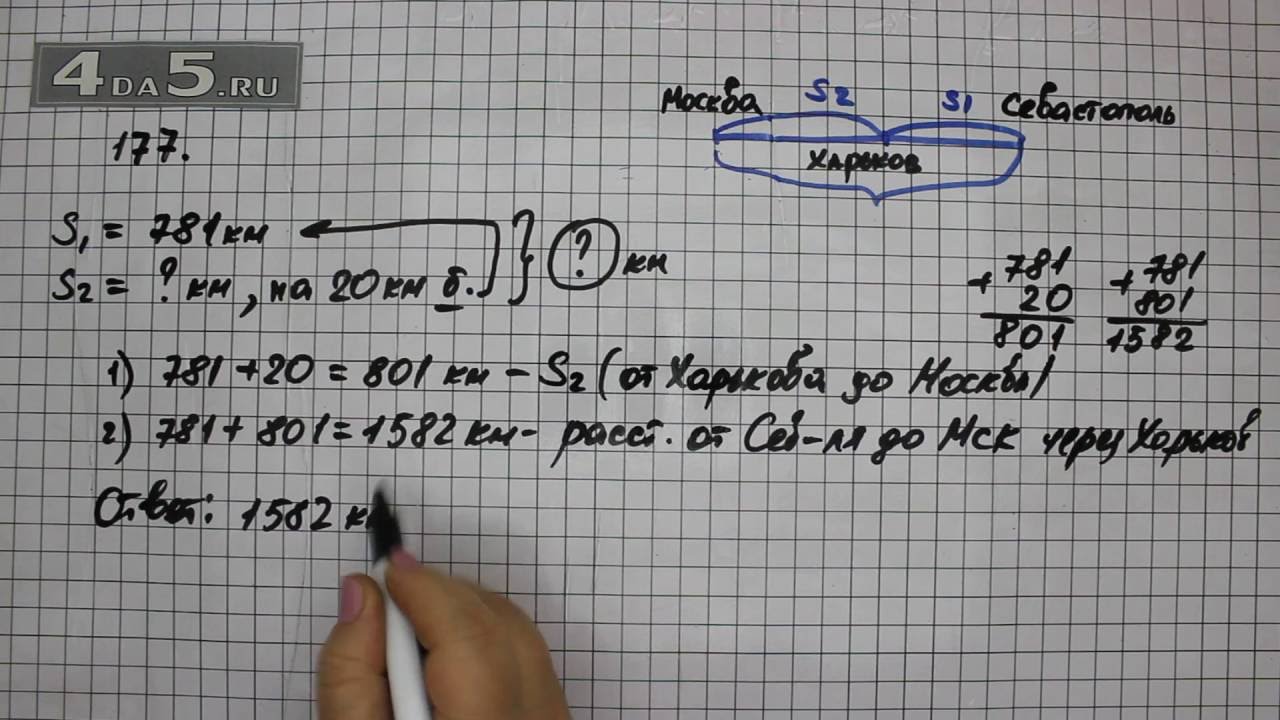 4DA5.RU
Москва S2 S1 Севастополь
Харьков
177.
S1 = 781 км
S2 = ? км, на 20 км б. } ? км
+ 781
20
801
+ 781
801
1582
1) 781 + 20 = 801 км - S2 (от Харькова до Москвы)
2) 781 + 801 = 1582 км - расст. от Сев-ля до Мск через Харьков
Ответ: 1582 км